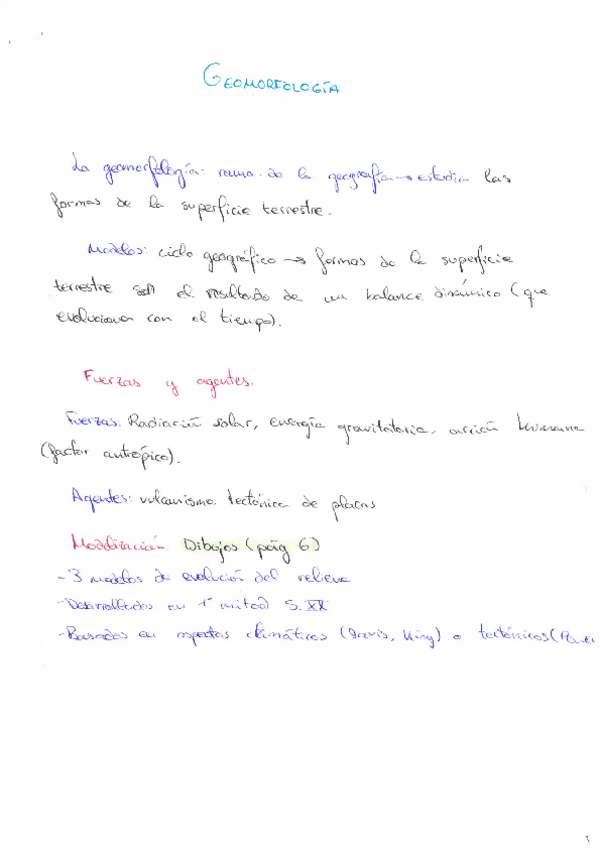 GEOMORFOLOGÍA
La geomorfología: rama de la geografía → estudia las
formas de la superficie terrestre.
Modelos: ciclo geográfico → formas de la superficie
terrestre son el resultado de un balance dinámico (que
evoluciona con el tiempo).
Fuerzas y agentes.
Fuerzas: Radiación solar, energía gravitatoria, acción humana
(factor antrópico).
Agentes: vulcanismo, tectónica de placas
Modelización. Dibujos (pág 6)
- 3 modelos de evolución del relieve
- Desarrollados en 1ª mitad S. XX
- Basados en aspectos climáticos (Davis, King) o tectónicos (
1